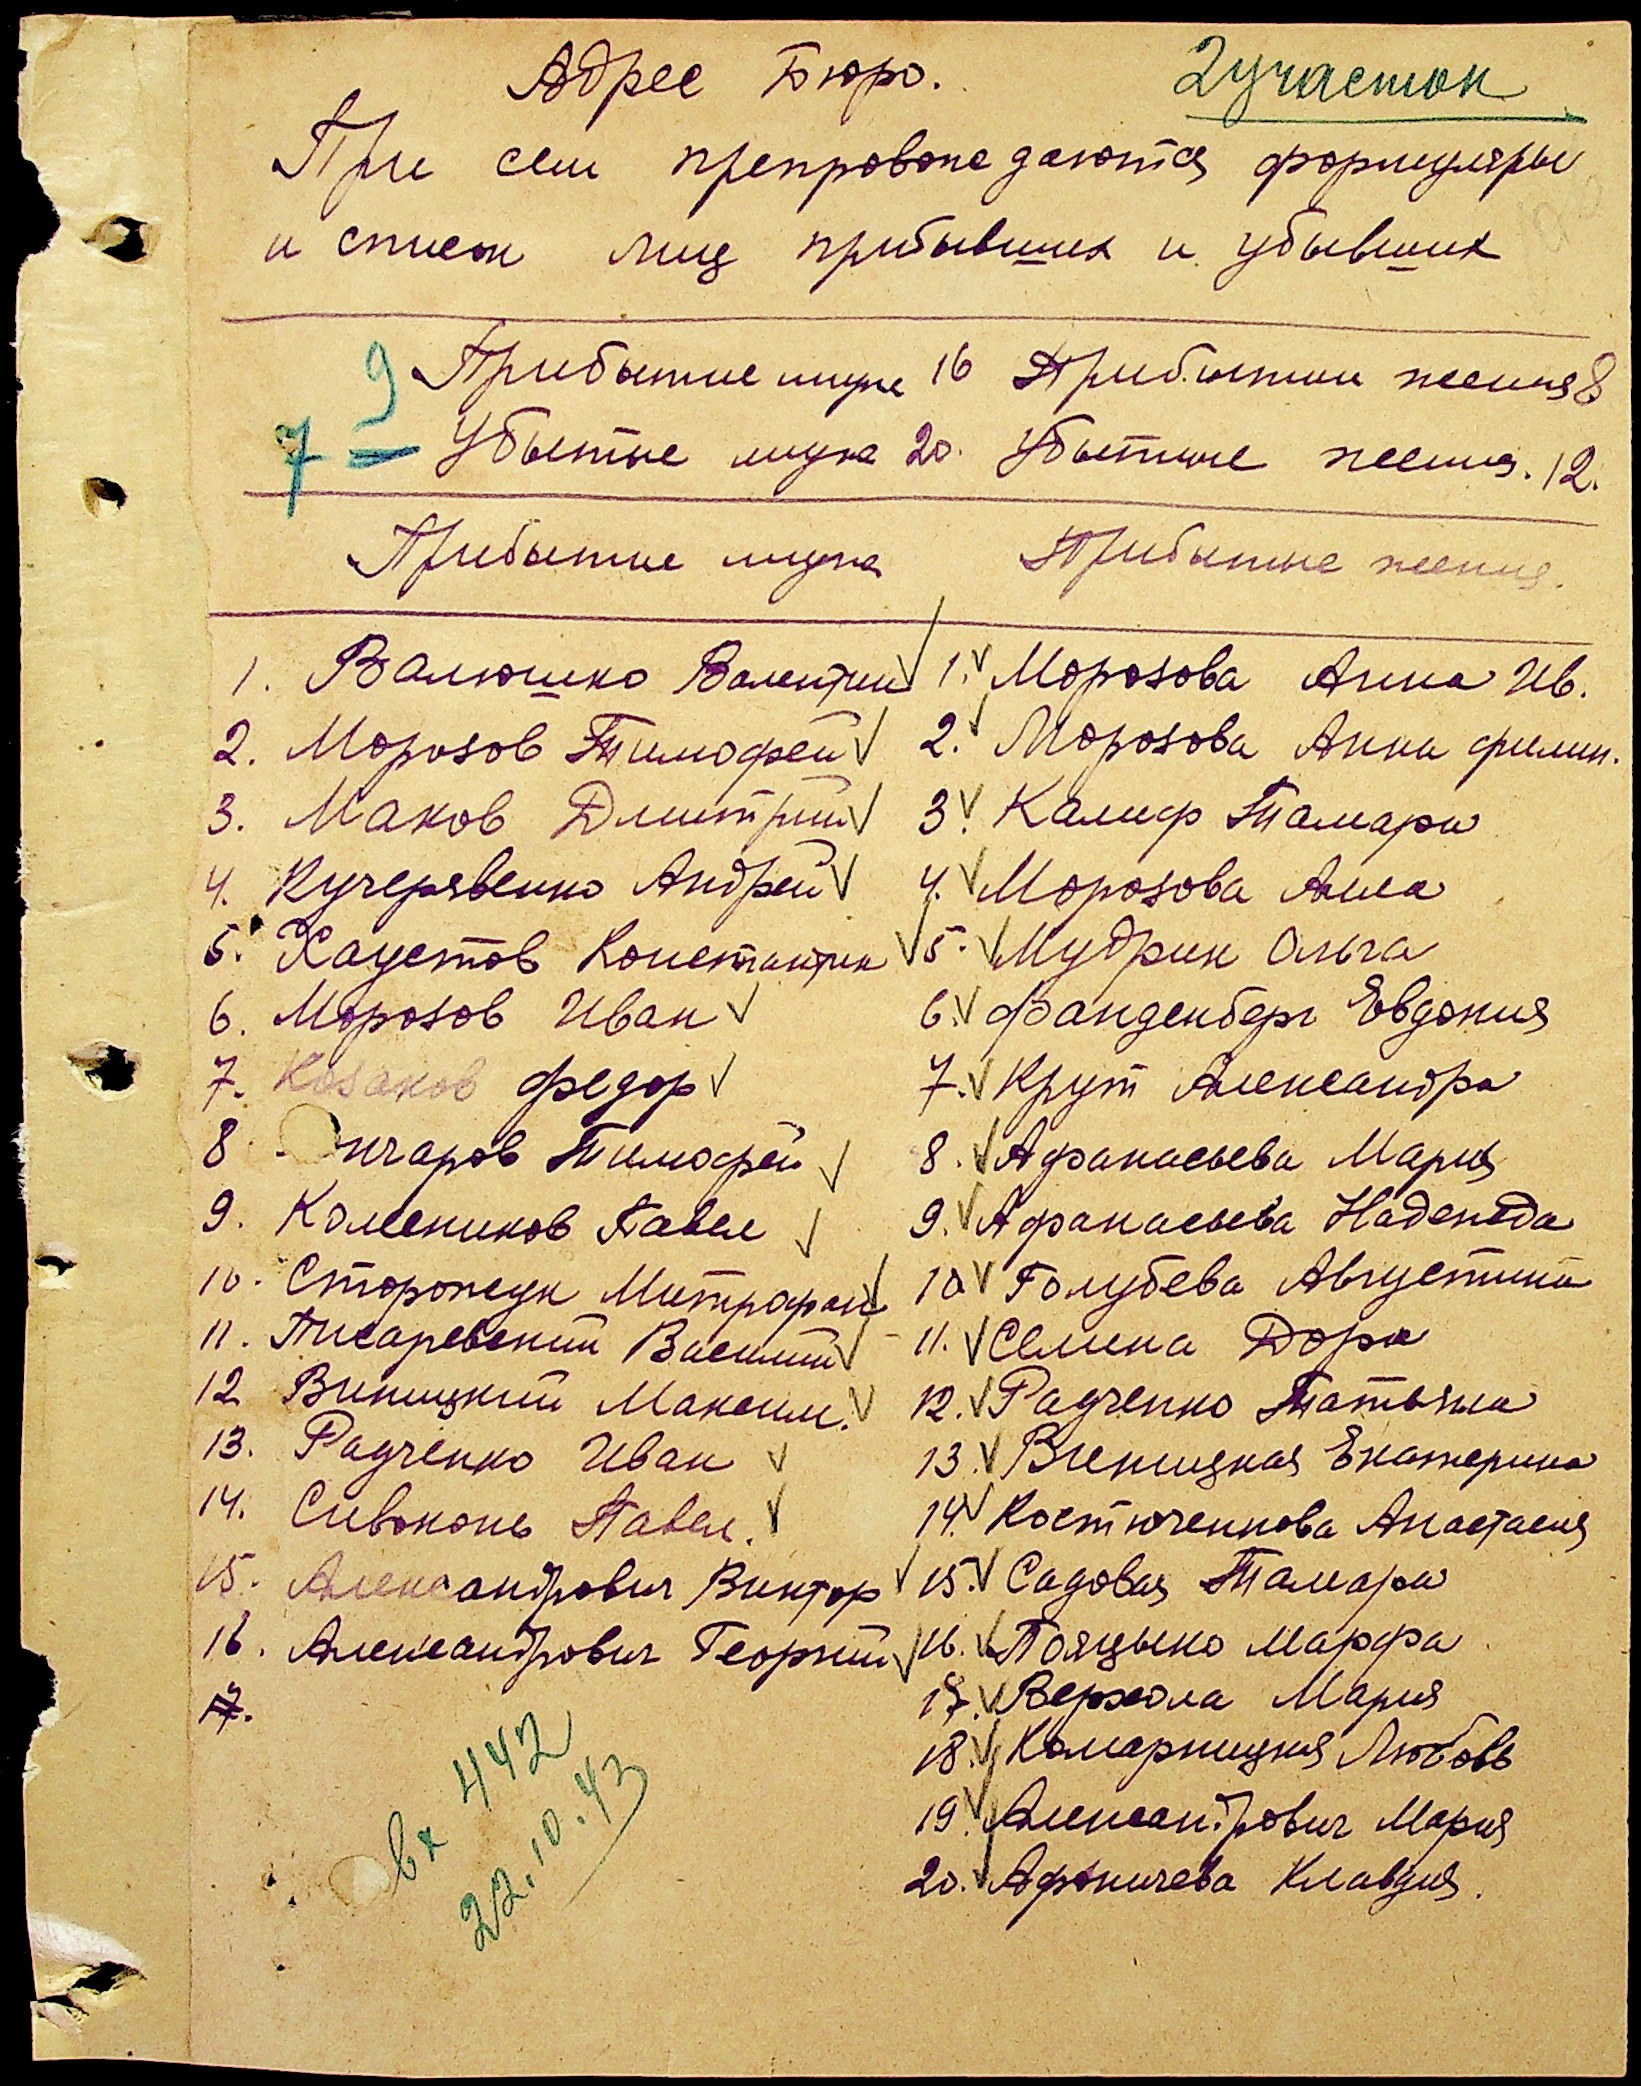 Адрес Бюро.
2 участок
При сем препровождаются формуляры
и список лиц прибывших и убывших
9 Прибытие мужс 16 Прибытии женщ 8
7 = Убытие мужс 20. Убытие женщ. 12.
Прибытие мужс Прибытие женщ.
1. Валюшко Валентин 1. Морозова Анна Ив.
2. Морозов Тимофей 2. Морозова Анна филип.
3. Маков Дмитрий 3. Калиф Тамара
4. Кучерявенко Андрей 4. Морозова Алла
5. Хаустов Константин 5. Мудрик Ольга
6. Морозов Иван 6. Фанденберг Евдокия
7. Козаков Федор 7. Крут Александра
8 нчаров Тимофей 8. Афанасьева Мария
9. Колесников Павел 9. Афанасьева Надежда
10. Сторожук Митрофан 10 Голубева Августина
11. Писаревский Василий 11. Селина Дора
12 Виницкий Максим. 12. Радченко Татьяна
13. Радченко Иван 13. Виницкая Екатерина
14. Сивоконь Павел. 14. Костюченкова Анастасия
15. Александрович Виктор 15. Садовая Тамара
16. Александрович Георгий 16. Марфа
17. 17. Верхола Мария
18. Комарницкая Любовь
19. Александрович Мария
20. Афоничева Клавдия.
вх 442
22.10.43